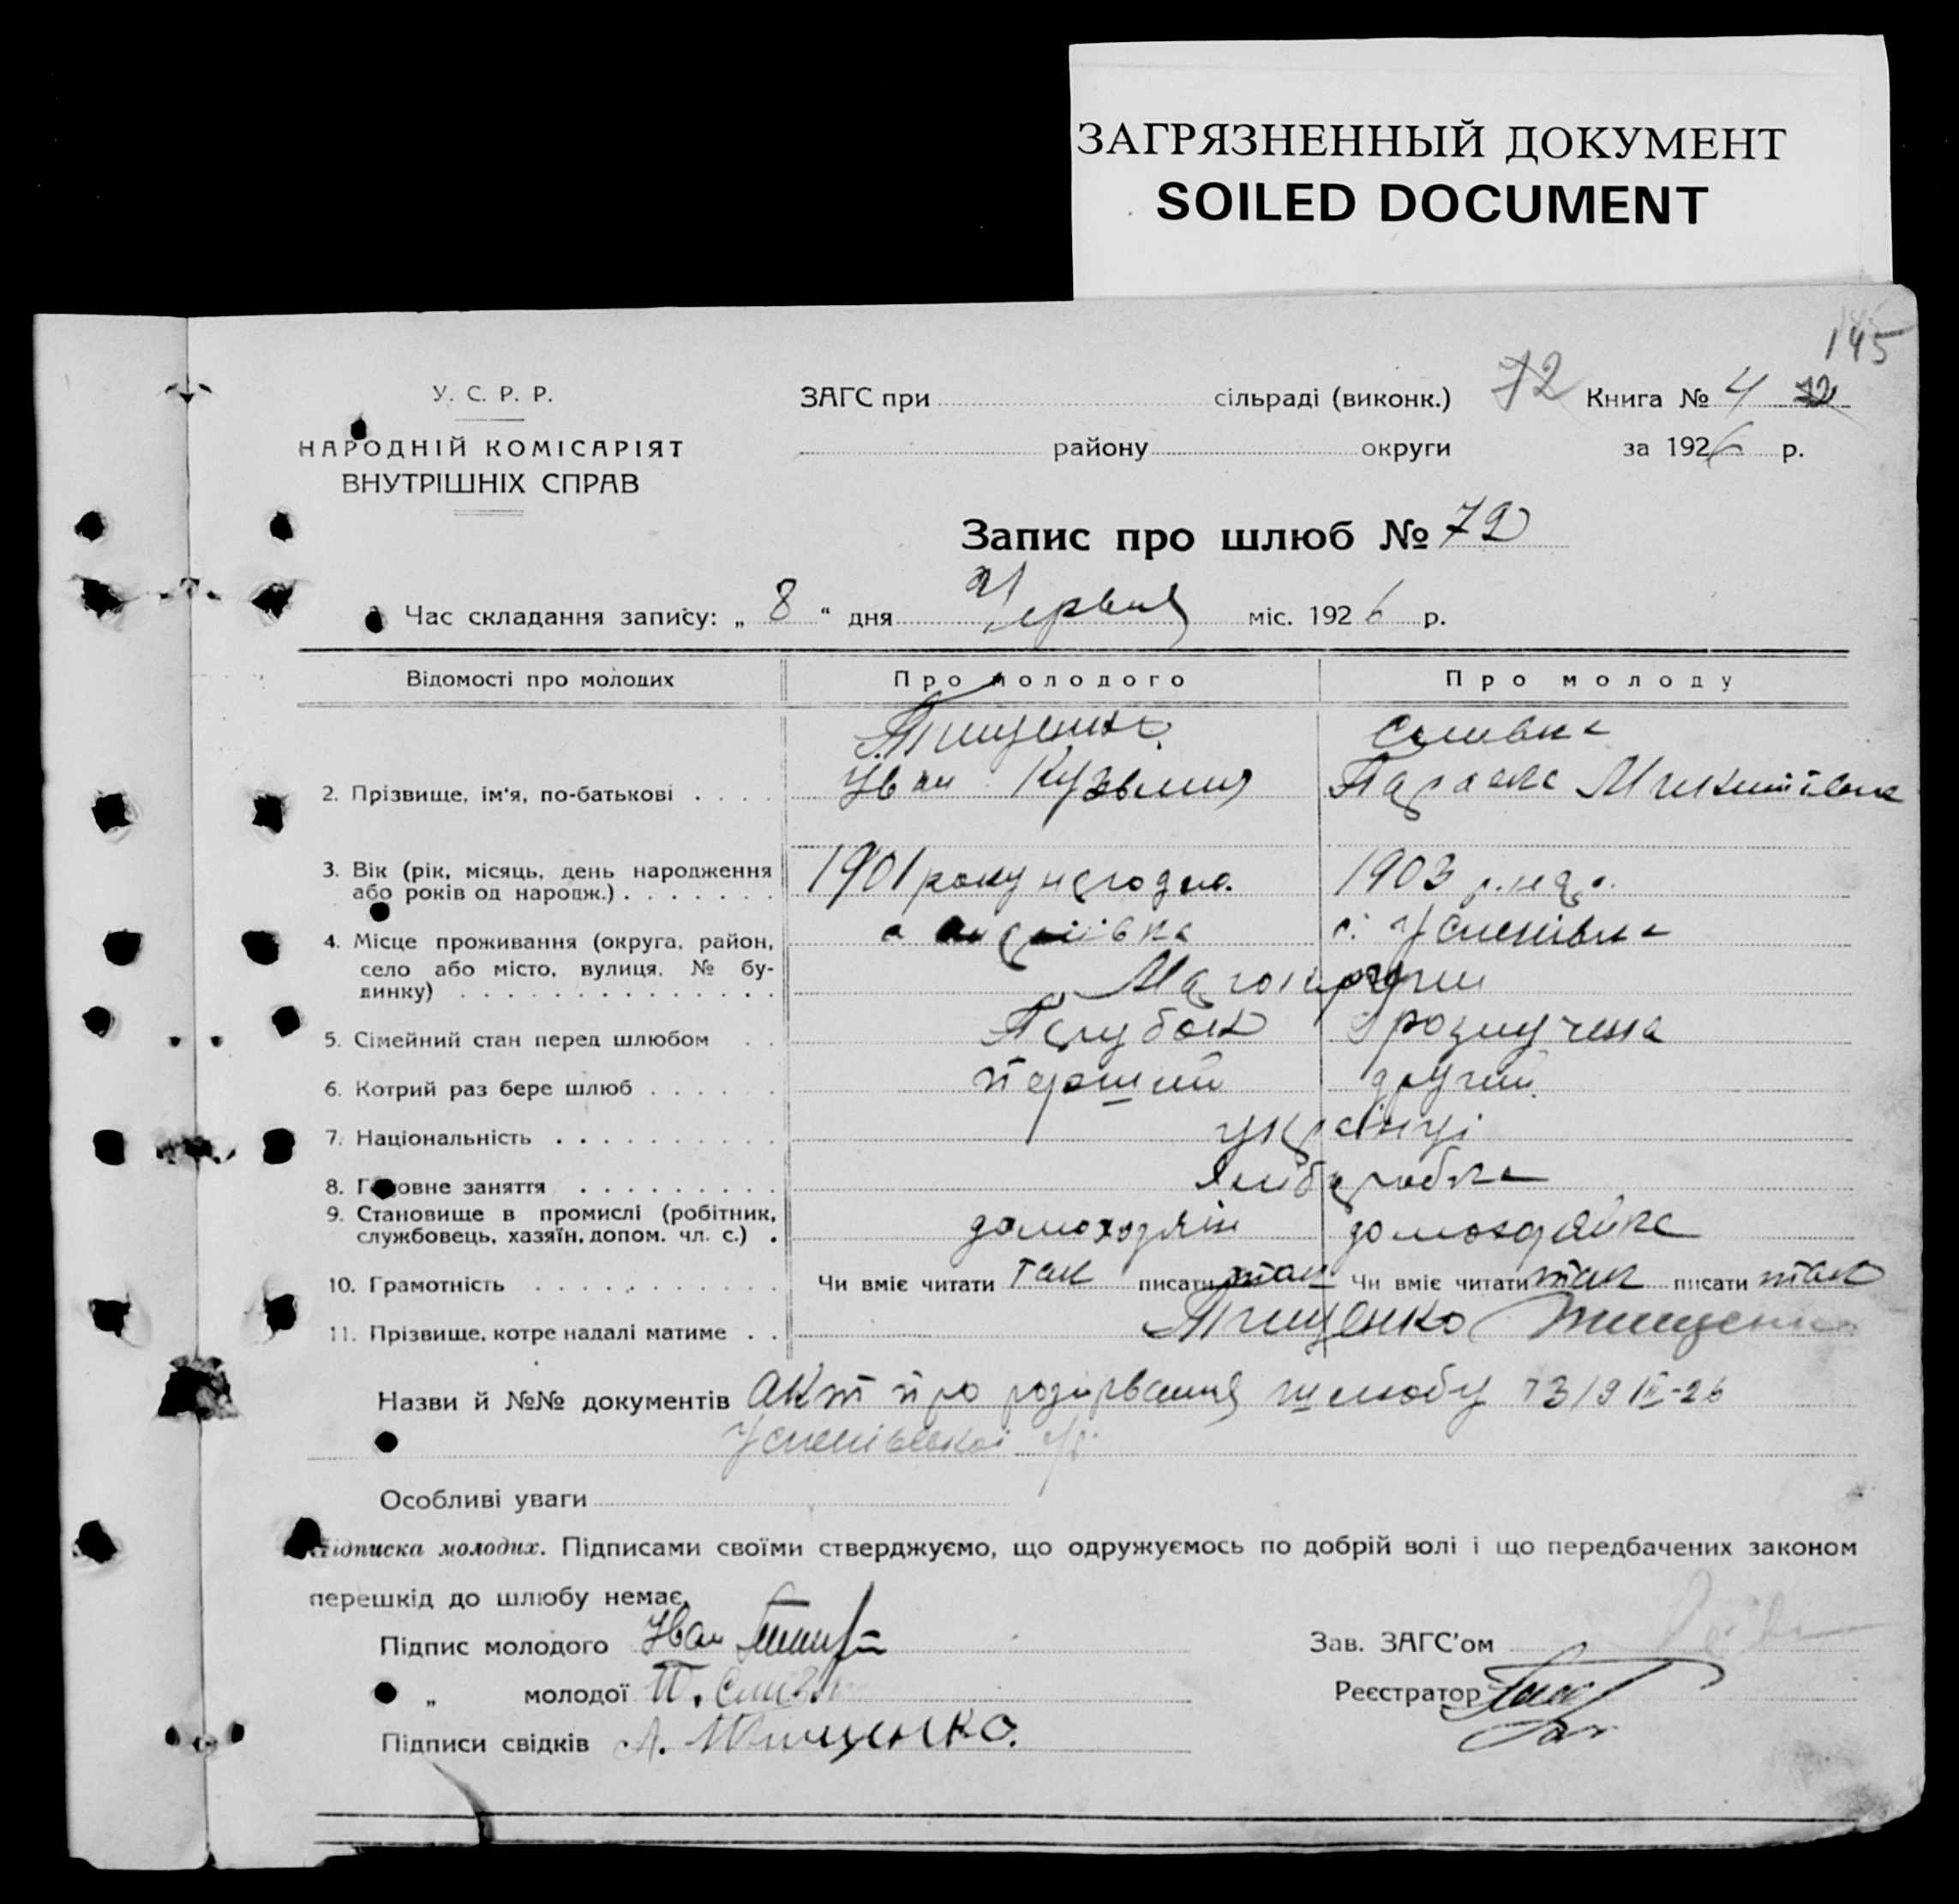 ЗАГРЯЗНЕННЫЙ ДОКУМЕНТ
SOILED DOCUMENT
145
У. С. Р. Р.
НАРОДНІЙ КОМІСАРІЯТ
ВНУТРІШНІХ СПРАВ
ЗАГС при сільраді (виконк.) 72 Книга № 4 72
району округи за 1926 р.
Запис про шлюб № 72
Час складання запису: „ 8 “ дня Червня міс. 1926 р.
Відомості про молодих Про молодого Про молоду
Тищенко Сливка
2. Прізвище, ім'я, по-батькові Іван Кузьмич Параска Микитівна
3. Вік (рік, місяць, день народження 1901 року народж. 1903 р. нар.
або років од народж.)
4. Місце проживання (округа, район, с. Успенівка
село або місто, вулиця, № бу-
динку)
5. Сімейний стан перед шлюбом Парубок розлучена
6. Котрий раз бере шлюб перший другий
7. Національність українці
8. Головне заняття хліборобство
9. Становище в промислі (робітник, домохазяїн домохазяйка
службовець, хазяїн, допом. чл. с.)
10. Грамотність Чи вміє читати так писати так Чи вміє читати так писати так
11. Прізвище, котре надалі матиме Тищенко Тищенко
Назви й №№ документів Акт про розірвання шлюбу
Успенівської
Особливі уваги
Підписка молодих. Підписами своїми стверджуємо, що одружуємось по добрій волі і що передбачених законом
перешкід до шлюбу немає.
Підпис молодого Іван Зав. ЗАГС'ом
„ молодої П. Сливка Реєстратор
Підписи свідків Тищенко.